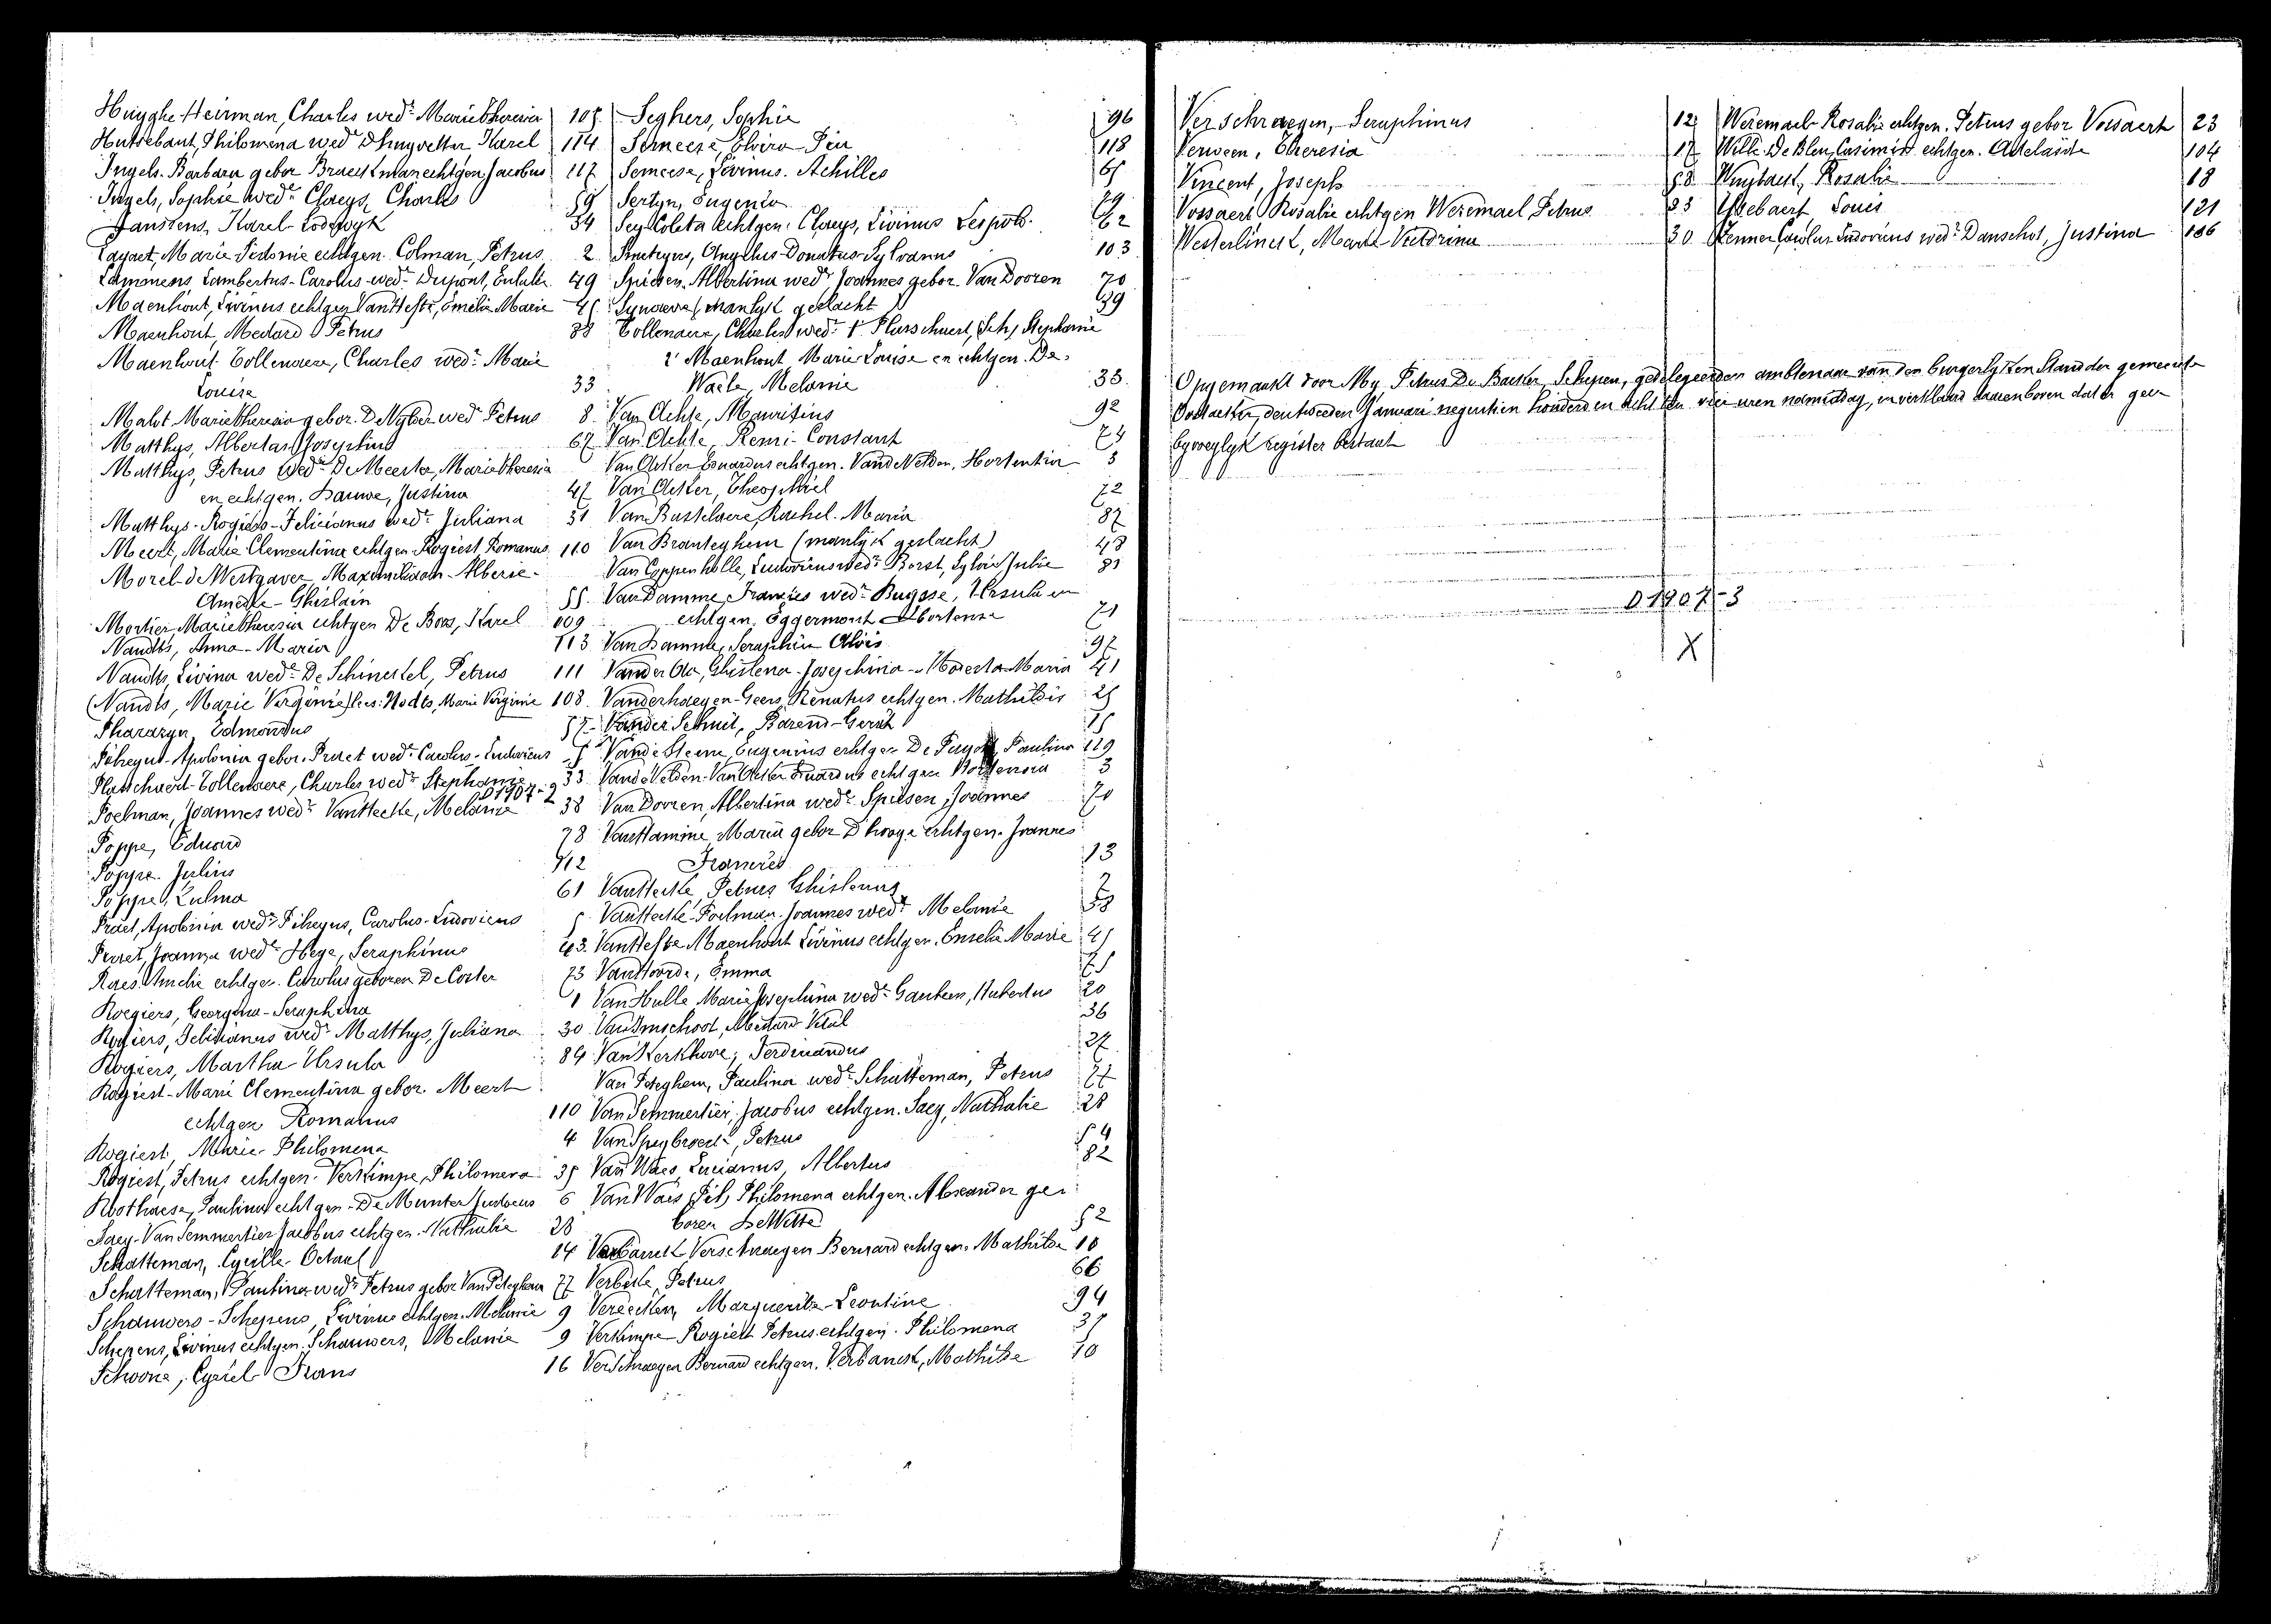 Huyghe-Heirman, Charles wedr Marie Theresia 105
Huttebaut, Philomena wed D'huyvetter Karel 114
Ingels-Barbara gebor Braeckman echtgen. Jacobus 117
Ingels, Sophie wede Claeys, Charles 59
Janssens, Karel Lodewyk 34
Layaet, Marie Sidonie echtgen. Colman, Petrus 2
Lammens, Lambertus-Carolus wedr Dupont, Eulalie 49
Maenhout, Livinus echtgen Van Hefte, Emelie Marie 45
Maenhout, Medard Petrus 88
Maenhout-Tollenaere, Charles wedr Marie
Louise 33
Malvt Marie Theresia gebor. De Nyber wed Petrus 8
Matthys, Albertas Josephus 67
Matthys, Petrus wedr De Meerter, Marie Theresia
en echtgen. Dauwe, Justina 47
Matthys-Rogiers-Felicianus wedr Juliana 31
Meert, Marie Clementina echtgen Rogiest, Romanus 110
Morel-de Westgaver, Maximiliaan-Alberic-
Amedée-Ghislain 55
Mortier, Marie Theresia echtgen De Boos, Karel 109
Naudts, Anna-Maria 113
Naudts, Livina wede De Schinckel, Petrus 111
(Naudts, Marie Virginie) lees: Nodts, Marie Virginie 108
Pharazyn, Edmondus 57
Piheyns-Apolonia gebor. Praet wedr Carolus-Ludovicus 5
Plasschaert-Tollenaere, Charles wedr Stephanie 33
D1907-2
Poelman, Joannes wedr Van Hecke, Melanie 38
Poppe, Eduard 78
Poppe, Julius 112
Poppe, Zulma 61
Praet, Apolonia wedr Piheyns, Carolus-Ludovicus 5
Praet, Joanna wede Hege, Seraphinus 43
Raes, Amelie echtgen. Carolus geboren De Coster 73
Roegiers, Georgina-Seraphina 1
Rogiers, Felicianus wedr Matthys, Juliana 30
Rogiers, Martha-Ursula 84
Rogiest-Marie Clementina gebor. Meert
echtgen Romanus 110
Rogiest, Marie-Philomena 4
Rogiest, Petrus echtgen. Verkimpe, Philomena 35
Roothaese, Paulina echtgen-De Munter Judocus 6
Saey-Van Semmertier Jacobus echtgen. Nathalie 28
Schatteman, Cyrille-Octaaf 14
Schatteman, Paulina wedr Petrus gebor Van Peteghem 77
Schauwers-Schepens, Livinus echtgen. Melanie 9
Schepens, Livinus echtgen. Schauwers, Melanie 9
Schoone, Cyriel Frans 16
Seghers, Sophie 96
Serneese, Elvira-Pia 118
Serneese, Livinus. Achilles 65
Sertyn, Eugenia
Sey Coleta echtgen. Claeys, Livinus Leopold. 62
Smitzyns, Angelus-Donatus-Sylvanus 103
Spiesen, Albertina wedr Joannes gebor. Van Dooren 70
Synaeve (manlyk geslacht) 39
Tollenaere, Charles wedr 1° Plasschaert, Stephanie
2° Maenhout Marie Louise en echtgen. De-
Waele, Melanie 33
Van Ackte, Mauritius 92
Van Ackte, Remi-Constant 74
Van Acker Eduardus echtgen. Van de Velden, Hortentia 3
Van Acker, Theophiel 72
Van Basselaere, Rachel-Maria 87
Van Branteghem (manlyk geslacht) 48
Van Coppenholle, Ludovicus wedr Borst, Sylvie Julie 81
Van Damme, Francies wedr Buysse, Ursula en
echtgen. Eggermont Hortense 71
Van Damme, Seraphin Alois 97
Vander Aa, Ghislena-Josephina-Modesta Maria 41
Vanderhaegen-Geers, Renatus echtgen. Mathildis 25
Vander Schuit, Barend-Gerrit 15
Van de Steene, Eugenius echtgen De Puydt, Paulina 119
Van de Velden-Van Acker Eduardus echtgen Hortensia 3
Van Dooren, Albertina wedr. Spiesen, Joannes 70
Van Hamme, Maria gebor D'hooge echtgen. Joannes
Francies 13
Van Hecke, Petrus Ghislenus 7
Van Hecke-Poelman. Joannes wedr Melanie 38
Van Hefte Maenhout Livinus echtgen. Emelie Marie 45
Van Hoorde, Emma 75
Van Hulle Marie Josephina wedr Gautsen, Hubertus 20
Van Imschoot, Medard Vital 36
Van Kerkhove, Ferdinandus 27
Van Peteghem, Paulina wede Schatteman, Petrus 77
Van Semmertier, Jacobus echtgen. Saey, Nathalie 28
Van Speybroeck, Petrus 54
Van Waes, Lucianus, Albertus 82
Van Waes, Philomena echtgen. Alexander ge-
boren De Witte 52
Verbanck-Verschraegen Bernard echtgen. Mathilde 10
Verbeke, Petrus 66
Vereecken, Marguerite-Leontine 94
Verkimpe-Rogiest Petrus echtgen. Philomena 35
Verschraegen Bernard echtgen. Verbanck, Mathilde 10
Verschraegen, Seraphinus 12
Verween, Theresia 17
Vincent, Joseph 58
Vossaert Rosalie echtgen Weremael Petrus 23
Westerlinck, Marie-Victorina 30
Weremael-Rosalie echtgen. Petrus gebor Vossaert 23
Wille-De Bleu, Casimir echtgen. Adelaïde 104
Wuytack, Rosalie 18
Ysebaert, Louis 121
Zenner, Carolus Ludovicus wedr Danschot, Justina 106
Opgemaakt door My Petrus De Backer, Schepen, gedelegeerden ambtenaar van den burgerlyken Stand der gemeente
Oostacker, den tweeden Januari negentien honderd en acht ten vier uren namiddag, en verklaard daarenboven dat er geen
byvoeglyk register bestaat
D1907-3
X